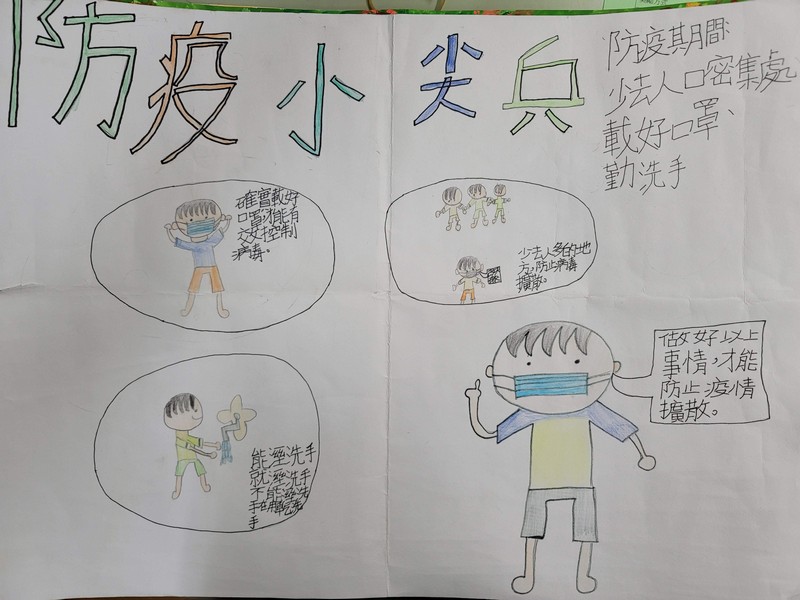 防疫小尖兵
防疫期間:
少去人口密集處
載好口罩、
勤洗手
確實載好
口罩,才能有
效控制
病毒。
少去人多的地
方,防止病毒
擴散。
能溼洗手
就溼洗手
不能溼洗
手在用乾洗
手
做好以上
事情,才能
防止疫情
擴散。